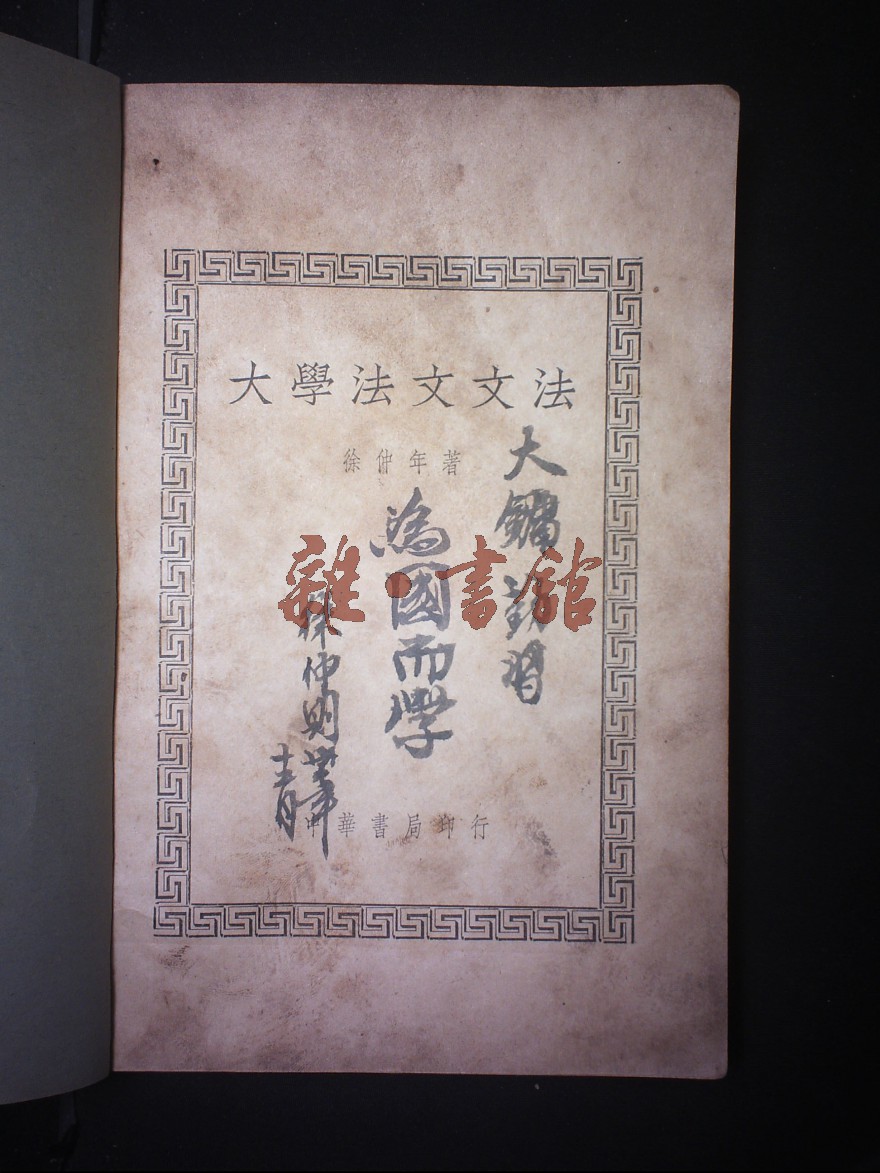 大學法文文法
徐仲年著
大鏞
習
為國而學
徐仲
年
十一月
中華書局印行
雜·書館